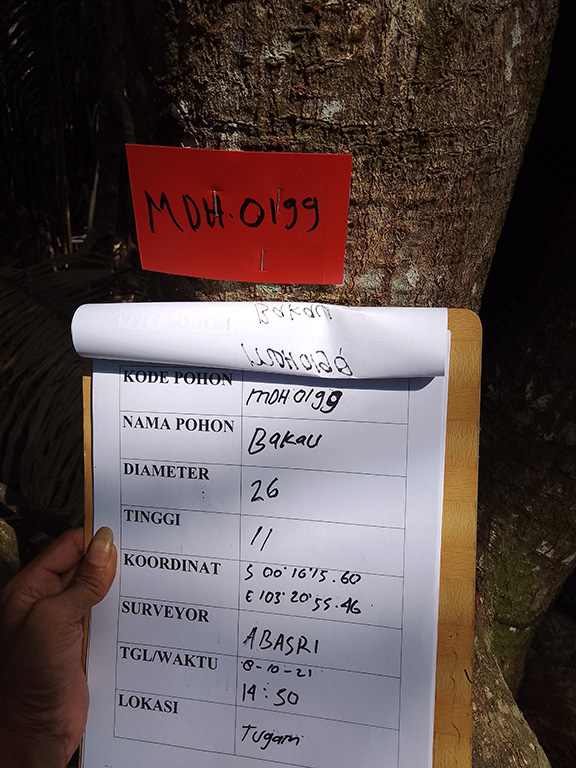 MDH.0199
Bakau
KODE POHON MDH0199
NAMA POHON Bakau
DIAMETER 26
TINGGI 11
KOORDINAT S 00°16'15.60
E 103°20'55.46
SURVEYOR ABASRI
TGL/WAKTU 8-10-21
14:50
LOKASI